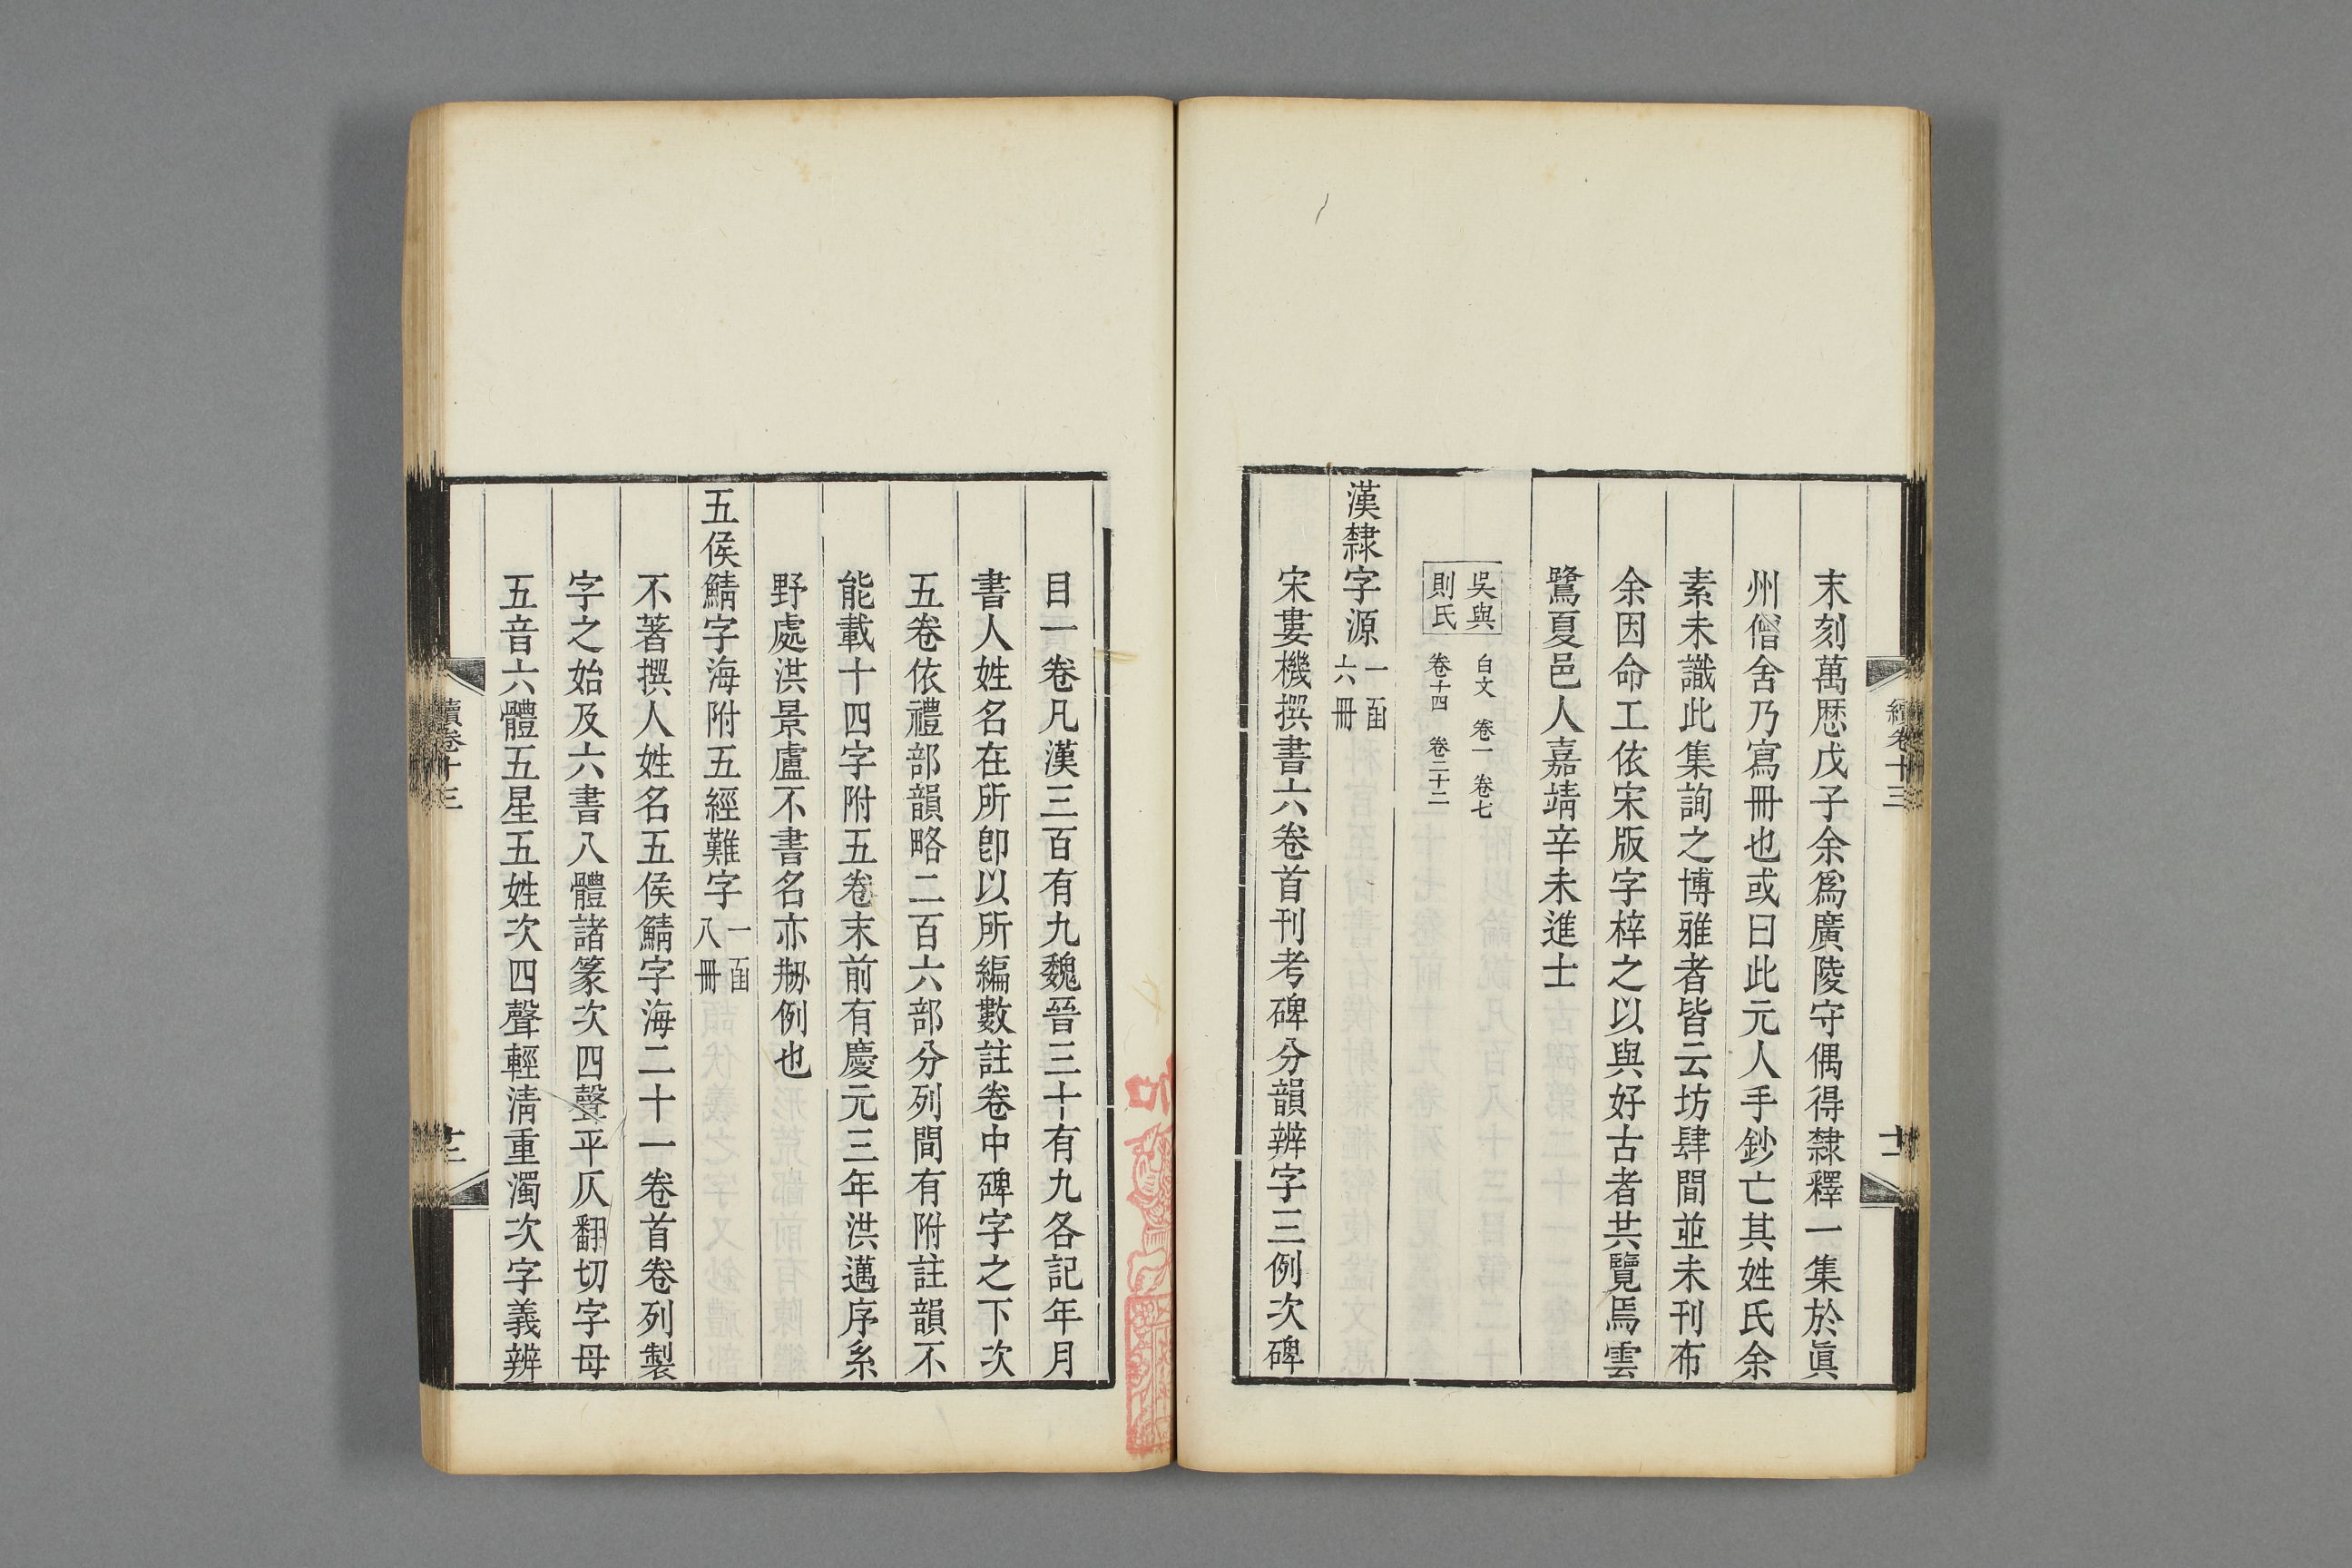 末刻萬厯戊子余爲廣陵守偶得隸釋一集於眞
州僧舍乃寫冊也或曰此元人手鈔亡其姓氏余
素未識此集詢之博雅者皆云坊肆間並未刊布
余因命工依宋版字梓之以與好古者共覽焉雲
鷺夏邑人嘉靖辛未進士
吳與則氏 白文 卷一 卷七
卷十四 卷二十二
漢隸字源 一函六冊
宋婁機撰書六卷首刊考碑分韻辨字三例次碑
續卷十三
目一卷凡漢三百有九魏晉三十有九各記年月
書人姓名在所卽以所編數註卷中碑字之下次
五卷依禮部韻略二百六部分列間有附註韻不
能載十四字附五卷末前有慶元三年洪邁序系
野處淇景盧不書名亦刱例也
五侯鯖字海附五經難字 一函八冊
不著撰人姓名五侯鯖字海二十一卷首卷列製
字之始及六書八體諸篆次四聲平仄翻切字母
五音六體五星五姓次四聲輕清重濁次字義辨
續卷十三